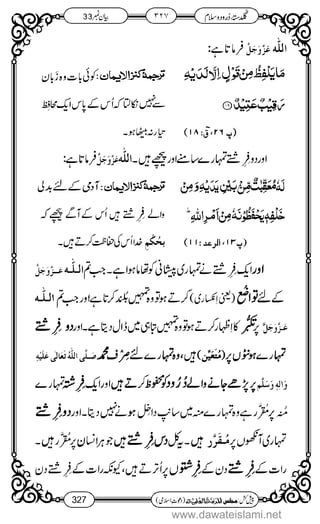 بیان نمبر 33
۳۲۷
گلدستۂ درود و سلام
اللہ عَزَّوَجَلَّ فرماتا ہے:
مَا یَلْفِظُ مِنْ قَوْلٍ اِلَّا لَدَیْهِ
ترجمۂ کنزالایمان: کوئی بات وہ زبان
رَقِیْبٌ عَتِیْدٌ ۝
سے نہیں نکالتا کہ اُس کے پاس ایک محافظ
(پ ۲۶، ق: ۱۸)
تیار نہ بیٹھا ہو۔
اور دو فرشتے تمہارے سامنے اور پیچھے ہیں۔ اللہ عَزَّوَجَلَّ فرماتا ہے:
لَهٗ مُعَقِّبٰتٌ مِّنْۢ بَیْنِ یَدَیْهِ وَ مِنْ
ترجمۂ کنزالایمان: آدمی کے لئے بدلی
خَلْفِهٖ یَحْفَظُوْنَهٗ مِنْ اَمْرِ اللّٰهِؕ
والے فرشتے ہیں اُس کے آگے پیچھے کہ
(پ ۱۳، الرعد: ۱۱)
بحکمِ خدا اُس کی حفاظت کرتے ہیں۔
اور ایک فرشتے نے تمہاری پیشانی کو تھاما ہوا ہے۔ جب تم اللہ عَزَّوَجَلَّ
کے لئے تواضُع (یعنی انکساری) کرتے ہو تو وہ تمہیں بُلند کرتا ہے اور جب تم اللہ
عَزَّوَجَلَّ پر تکبُّر کا اظہار کرتے ہو تو وہ تمہیں تباہی میں ڈال دیتا ہے۔ اور دو فرشتے
تمہارے ہونٹوں پر (مُتَعَیَّن) ہیں، وہ تمہارے لئے صرف محمد صَلَّی اللہُ تَعَالٰی عَلَیْہِ
وَاٰلِہٖ وَسَلَّم پر پڑھے جانے والے دُرُود کو محفوظ کرتے ہیں اور ایک فرشتہ تمہارے
مُنہ پر مُقَرَّر ہے وہ تمہارے منہ میں سانپ داخل نہیں ہونے دیتا۔ اور دو فرشتے
تمہاری آنکھوں پر مُقَرَّر ہیں۔ یہ کل دس فرشتے ہیں جو ہر انسان پر مُقَرَّر ہیں۔
رات کے فرشتے دن کے فرشتوں پر اُترتے ہیں، کیونکہ رات کے فرشتے دن
327
www.dawateislami.net